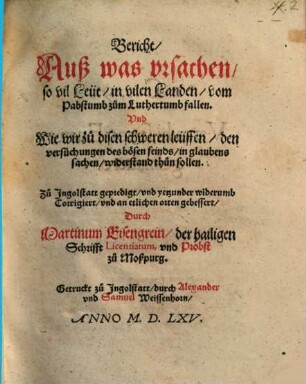 Bericht/
Auß was vrsachen/
so vil Leüt/ in vilen Landen/ vom
Pabstumb zům Luthertumb fallen.
Vnd
Wie wir zů disen schweren leüffen/ den
versůchungen des bösen feinds/ in glaubens
sachen/ widerstand thůn sollen.
Zů Ingolstatt geprediget/ vnd yetzunder widerumb
Corrigiert/ vnd an etlichen orten gebessert/
Durch
Martinum Eisengrein/ der hailigen
Schrifft Licentiatum, vnd Probst
zů Moßpurg.
Getruckt zů Ingolstatt/ durch Alexander
vnd Samuel Weissenhorn/
ANNO M. D. LXV.